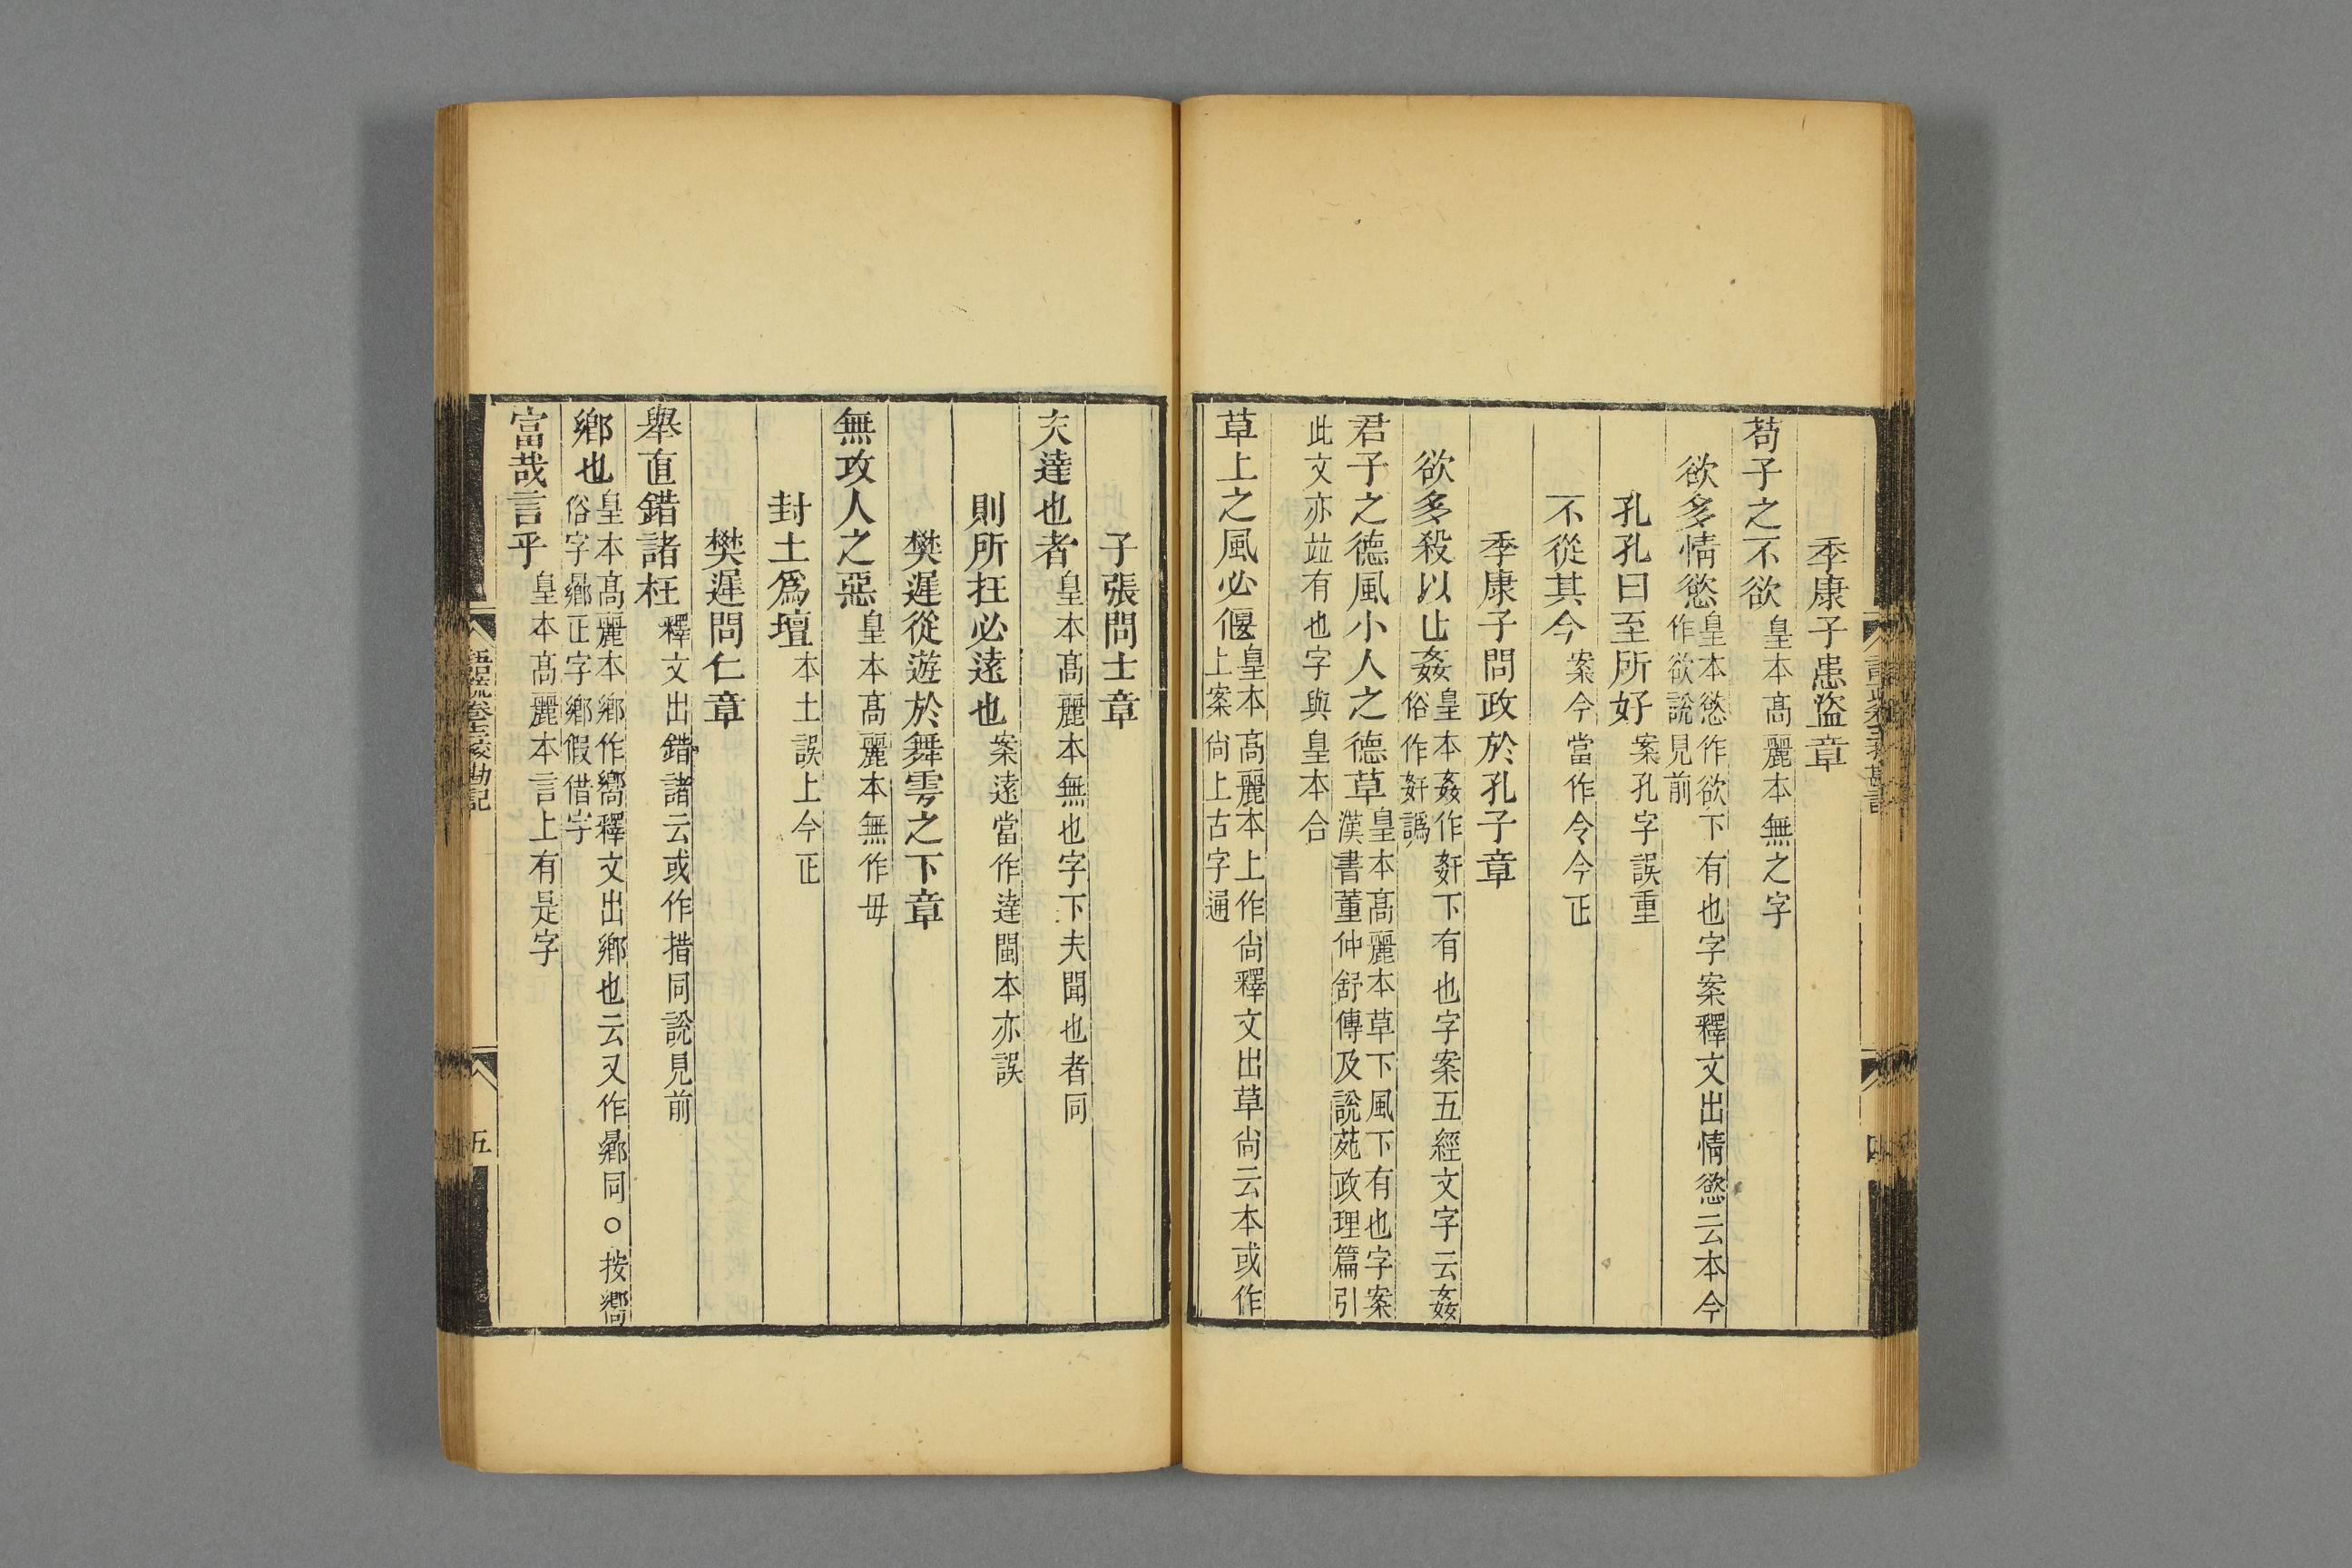 季康子患盜章
苟子之不欲皇本高麗本無之字
欲多情慾皇本慾作欲下有也字案釋文出情慾云本今作欲說見前
孔孔曰至所好案孔字誤重
不從其今案今當作令今正
季康子問政於孔子章
欲多殺以止姦皇本姦作姧下有也字案五經文字云姦俗作姧譌
君子之德風小人之德草皇本高麗本草下風下有也字案漢書董仲舒傳及說苑政理篇引
此文亦竝有也字與皇本合
草上之風必偃皇本高麗本上作尙釋文出草尙云本或作上案尙上古字通
四
子張問士章
夫達也者皇本高麗本無也字下夫聞也者同
則所抂必遠也案遠當作達閩本亦誤
樊遲從遊於舞雩之下章
無攻人之惡皇本高麗本無作毋
封土爲壇本土誤上今正
樊遲問仁章
舉直錯諸枉釋文出錯諸云或作措同說見前
鄉也皇本高麗本鄉作嚮釋文出鄉也云又作曏同○按嚮俗字曏正字鄉假借字
富哉言乎皇本高麗本言上有是字
語疏卷十二校勘記
五